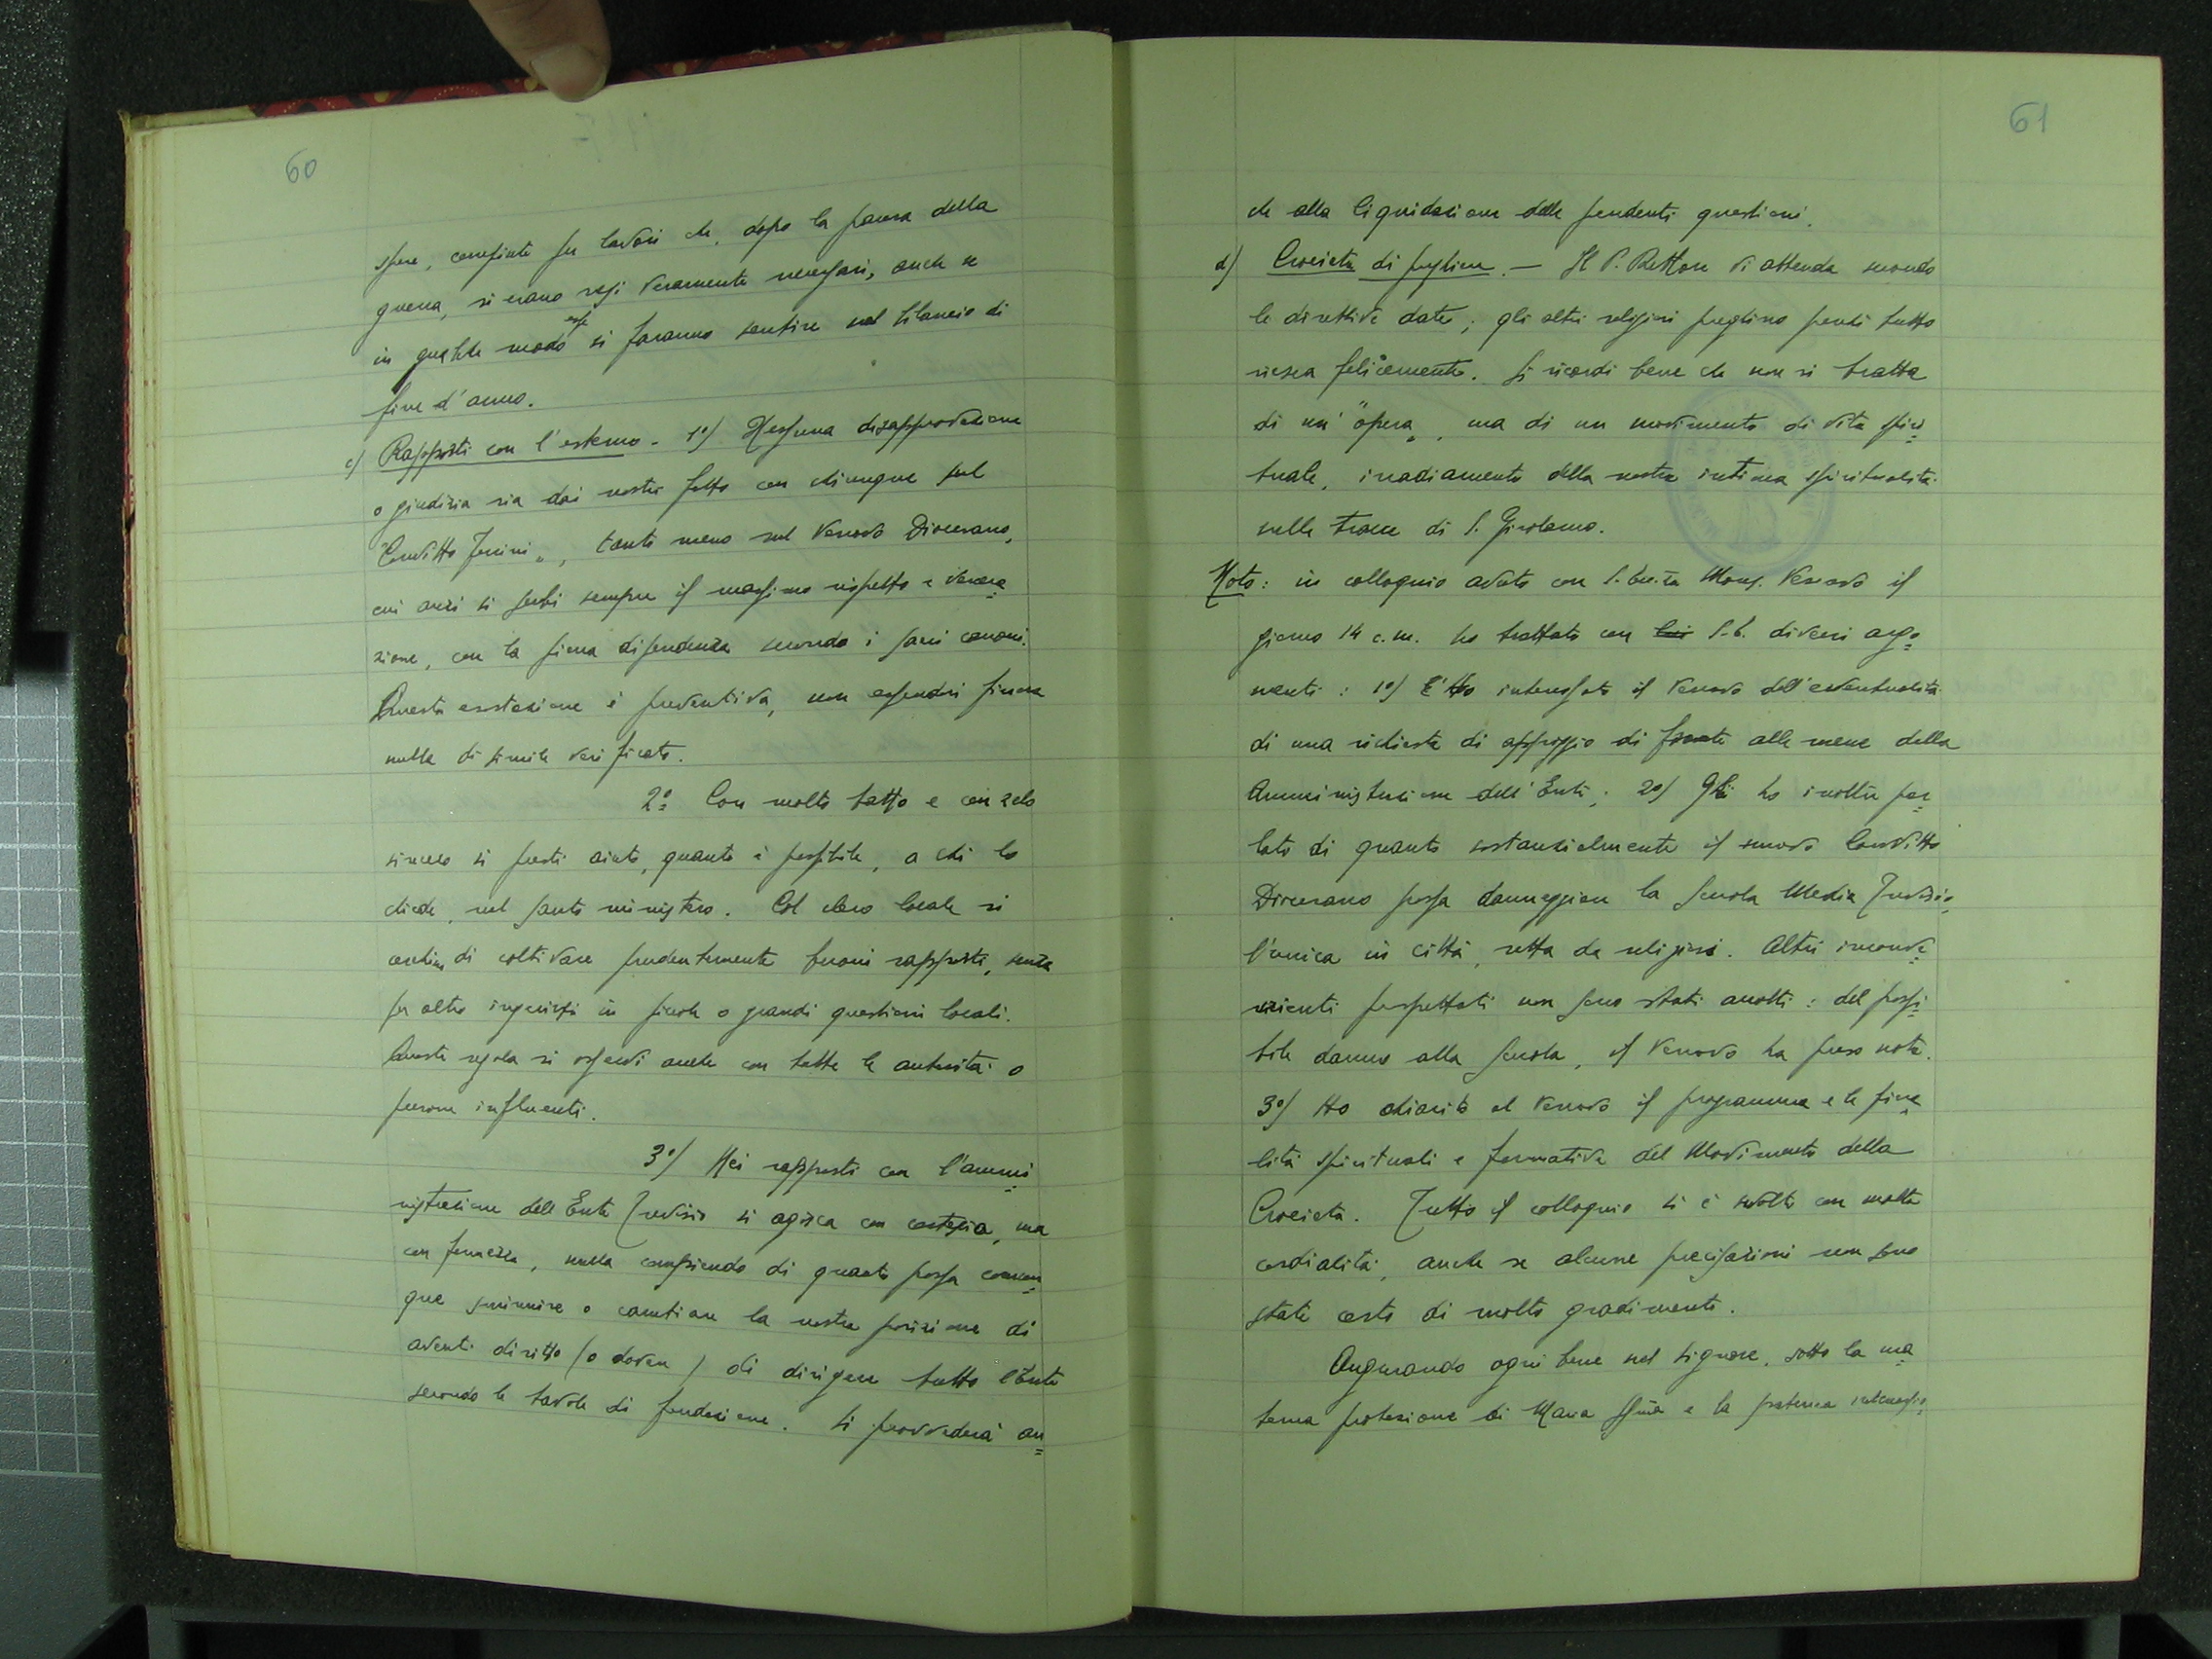 60
spese, compiute per lavori che, dopo la pausa della
guerra, si erano resi veramente necessari, anche se
in qualche modo esse si faranno sentire nel bilancio di
fine d'anno.
c) Rapporti con l'esterno - 1°/ Nessuna disapprovazione
o giudizio sia dai nostri fatto con chiunque sul
"Convitto Tonini", tanto meno sul Vescovo Diocesano,
cui anzi si serbi sempre il massimo rispetto e venera=
zione, con la piena dipendenza secondo i sacri canoni.
Questa esortazione è preventiva, non essendosi finora
nulla di simile verificato.
2° Con molto tatto e con zelo
sincero si presti aiuto, quanto è possibile, a chi lo
chiede, nel santo ministero. Col clero locale si
cerchino di coltivare prudentemente buoni rapporti, senza
per altro ingerirsi in piccole o grandi questioni locali.
Questa regola si osservi anche con tutte le autorità o
persone influenti.
3°/ Nei rapporti con l'ammi=
nistrazione dell'Ente Trevisio si agisca con cortesia, ma
con fermezza, nulla compiendo di quanto possa comun=
que sminuire o cambiare la nostra posizione di
aventi diritto (o dovere) di dirigere tutto l'Ente
secondo le tavole di fondazione. Si provvederà an=
61
che alla liquidazione delle pendenti questioni.
d) Crociata di preghiera. - Il P. Rettore vi attenda secondo
le direttive date; gli altri religiosi preghino perché tutto
riesca felicemente. Si ricordi bene che non si tratta
di un' "opera", ma di un movimento di vita spiri=
tuale, irradiamento della nostra intima spiritualità
sulle tracce di S. Girolamo.
Nota: in colloquio avuto con S. Ecc.za Mons. Vescovo il
giorno 14 c.m. ho trattato con lui S.E. diversi argo=
menti: 1°/ Ho interessato il Vescovo dell'eventualità
di una richiesta di appoggio di fronte alle mene della
Amministrazione dell'Ente; 2°/ Gli ho inoltre par=
lato di quanto sostanzialmente il nuovo Convitto
Diocesano possa danneggiare la Scuola Media Trevisio,
l'unica in città, retta da religiosi. Altri inconve=
nienti prospettati non sono stati accolti: del possi=
bile danno alla Scuola, il Vescovo ha preso nota.
3°/ Ho chiarito al Vescovo il programma e le fina=
lità spirituali e formative del Movimento della
Crociata. Tutto il colloquio si è svolto con molta
cordialità, anche se alcune precisazioni non sono
state certo di molto gradimento.
Augurando ogni bene nel Signore, sotto la ma=
terna protezione di Maria SS.ma e la paterna intercessio=